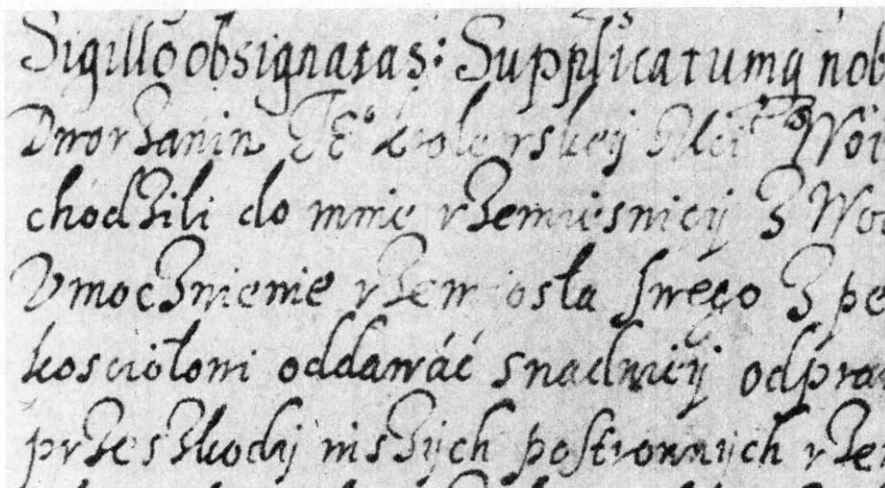 Sigillo obsignatas: Supplicatumq nob
Dworzanin Je° Krolewskiej Mci Woi
chodzili do mnie rzemiesnicy z Wo
Vmocznienie rzemiosła swego z pe
kosciołowi oddawáć snadniej odpra
przeszkody inszych postronnych rzem